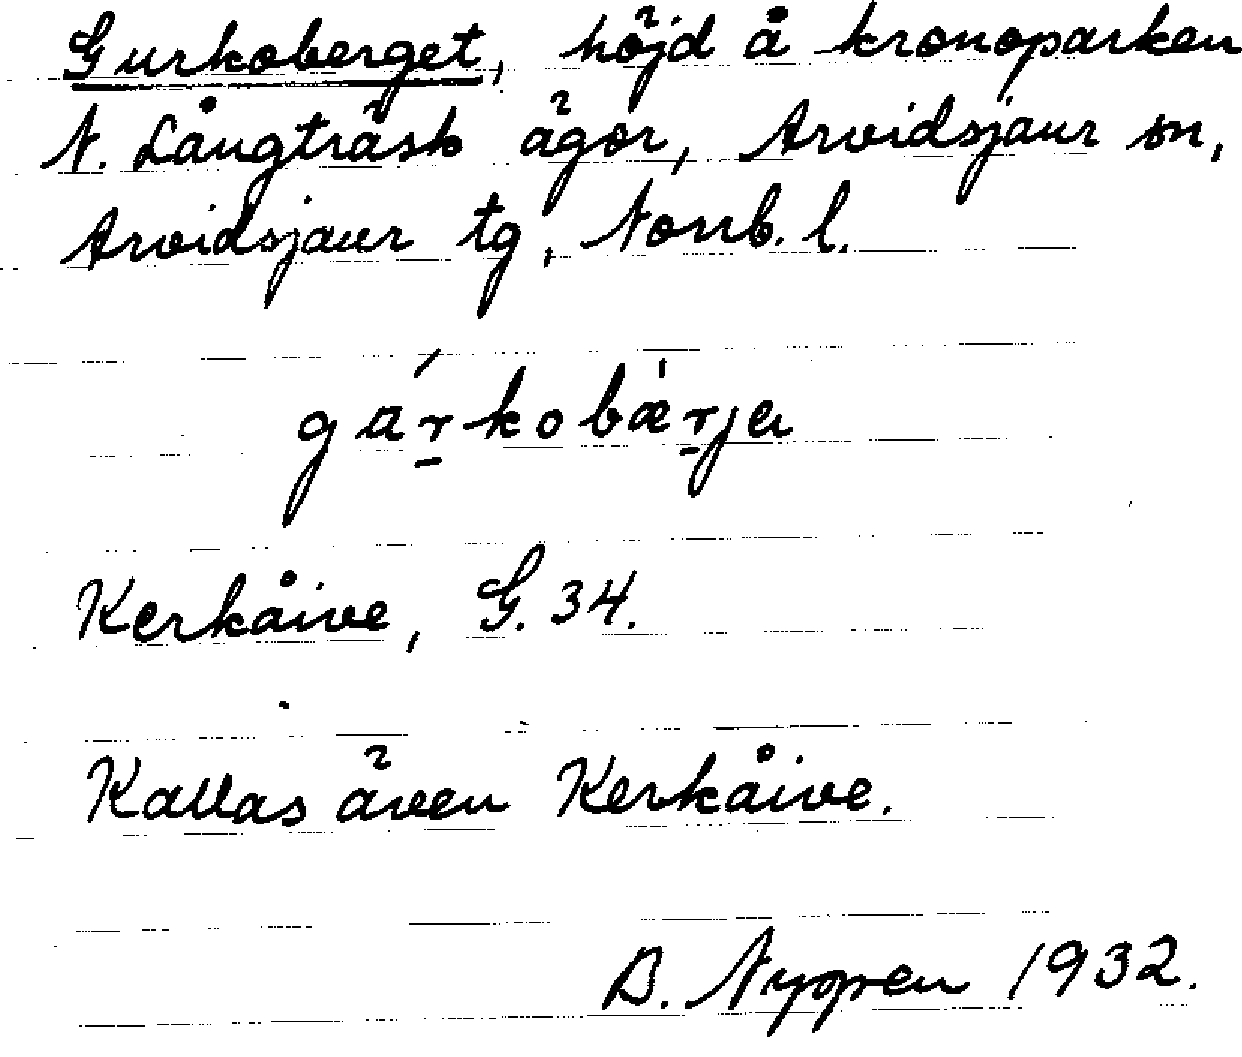 Gurkoberget, höjd å kronoparken
N. Långträsk ägor, Arvidsjaur sn,
Arvidsjaur tg, Norrb. l.
gárkobǽrja
Kerkåive, G. 34.
Kallas även Kerkåive.
B. Nyppen 1932.